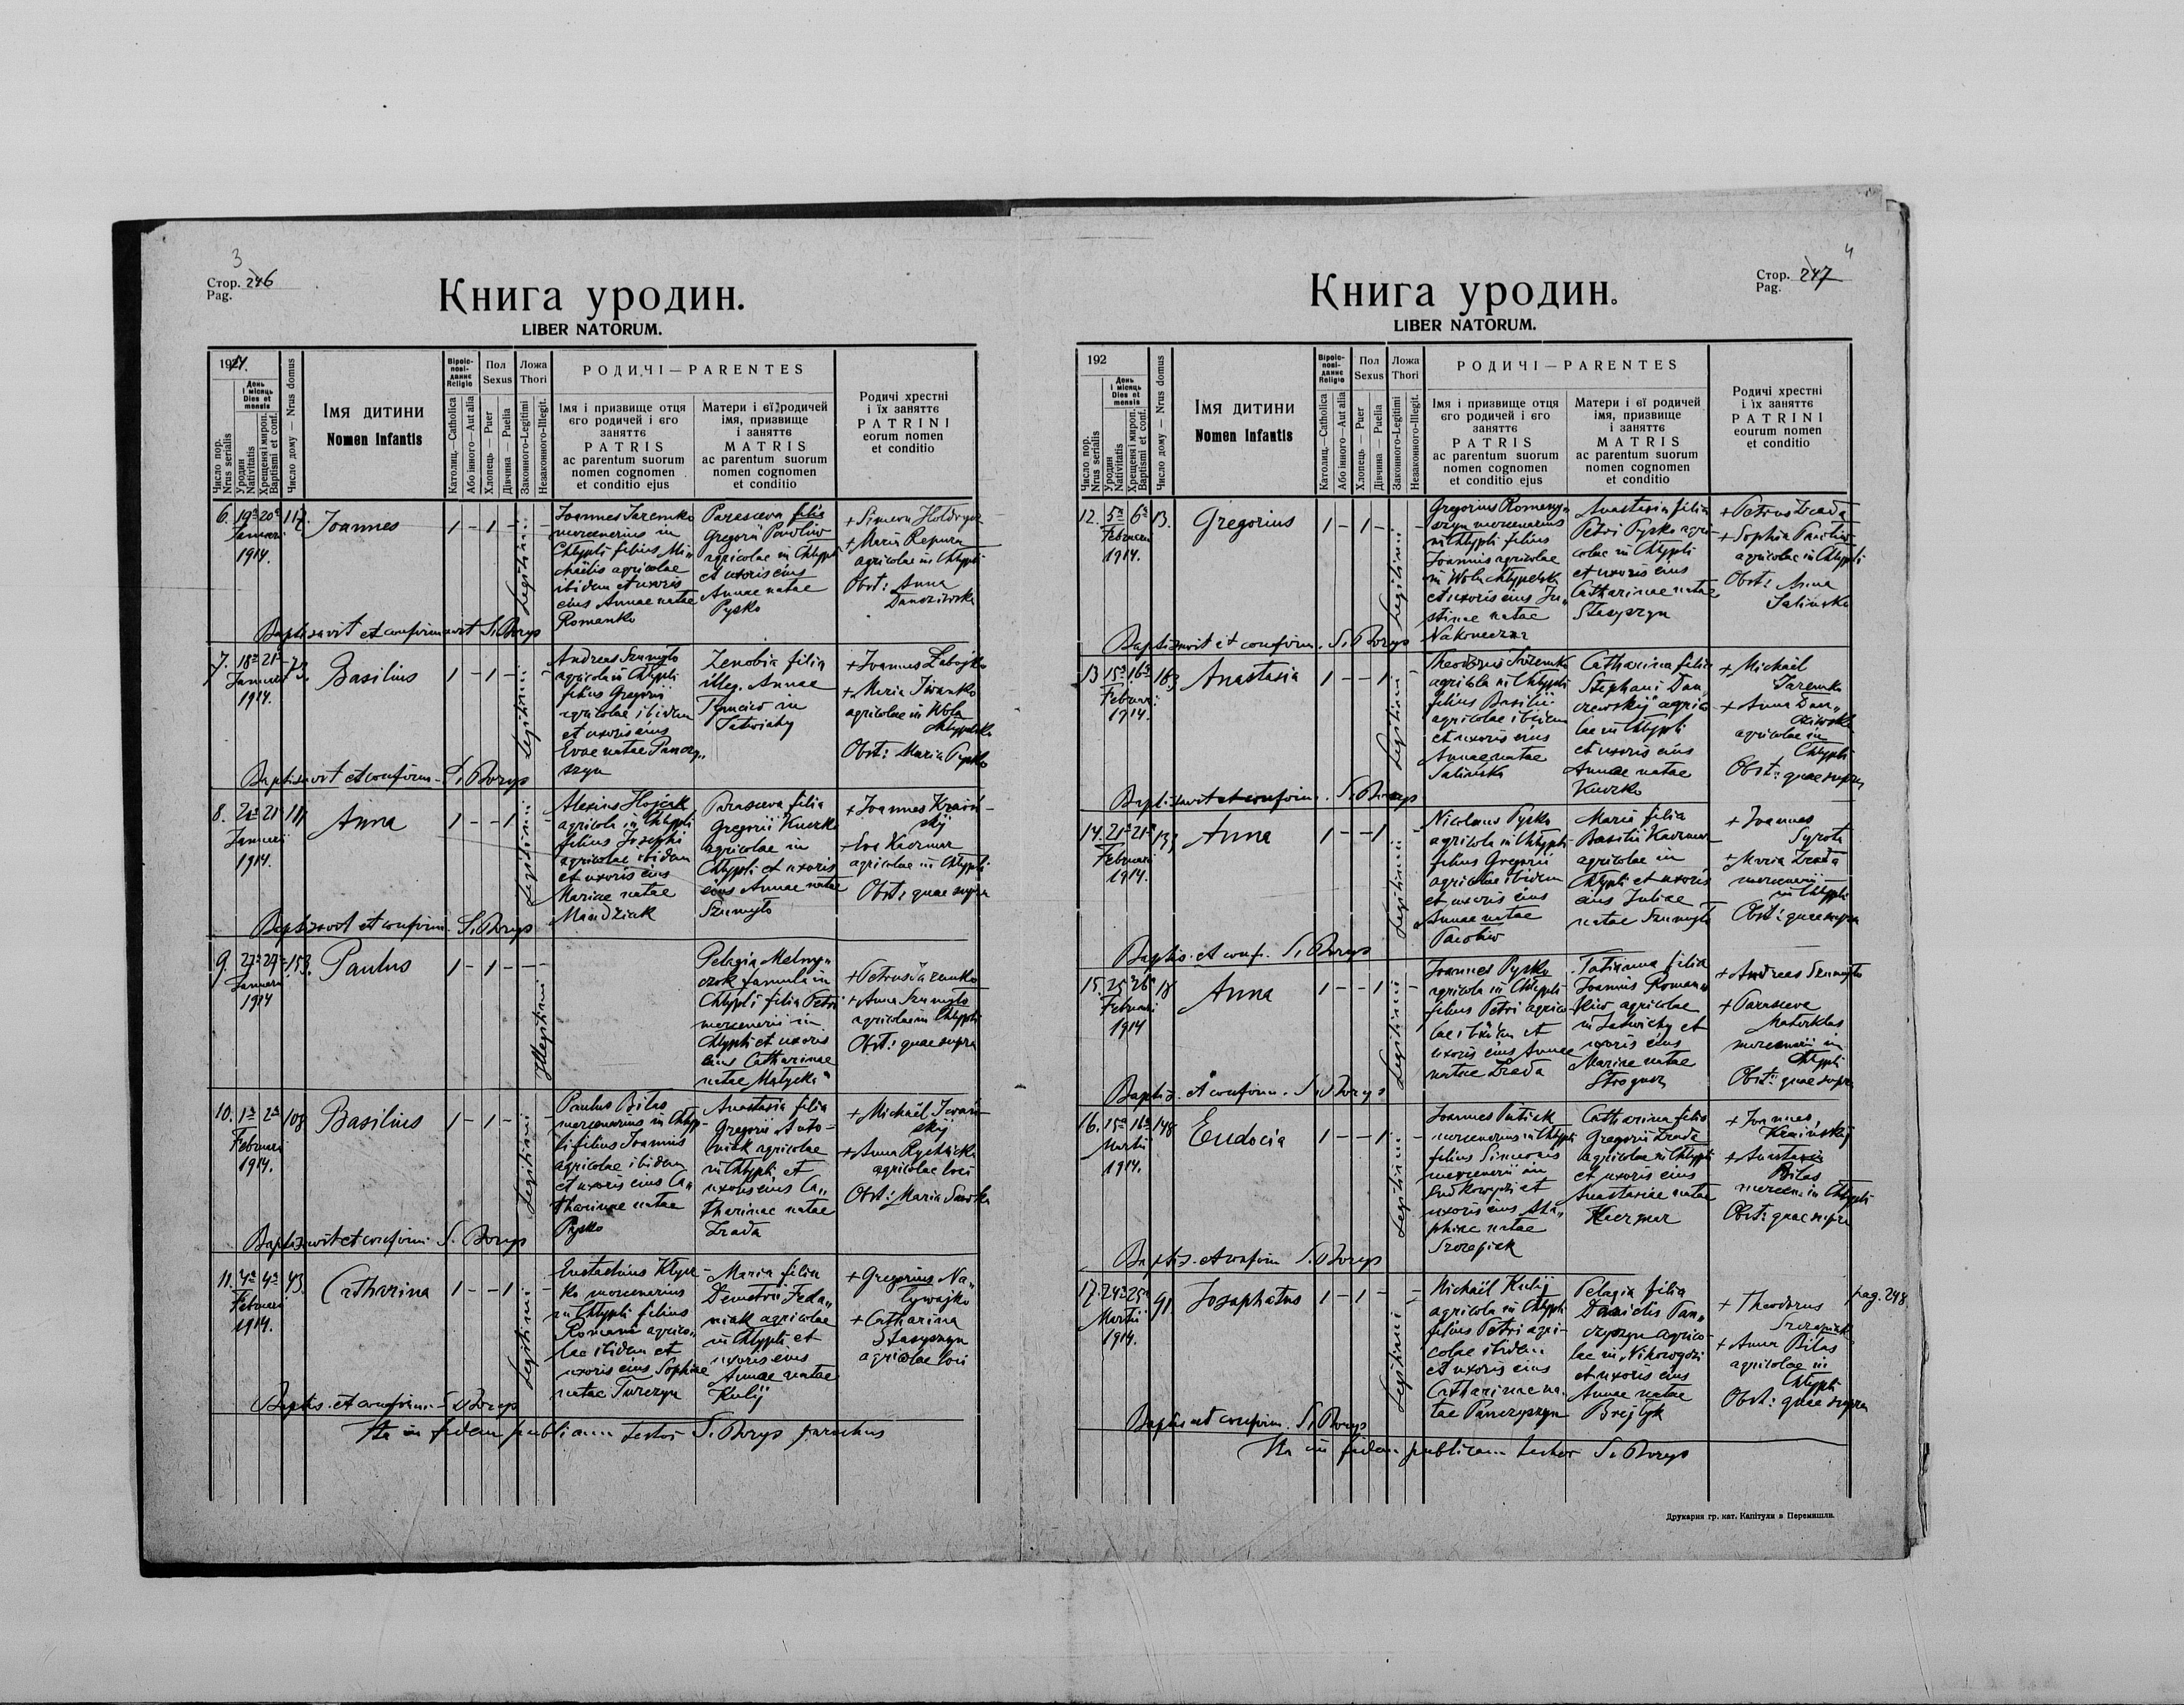 3
Стор. 246
Pag.
Книга уродин.
LIBER NATORUM.
1914.
День і місяць
Dies et mensis
Число пор.
Nrus serialis
Уродин
Nativitatis
Хрещеня і миропом.
Baptismi et conf.
Число дому — Nrus domus
Імя дитини
Nomen Infantis
Віроіс-
пові-
данне
Religio
Католиц.—Catholica
Або інного—Aut alia
Пол
Sexus
Хлопець — Puer
Дівчина — Puella
Ложа
Thori
Законного-Legitimi
Незаконного-Illegit.
РОДИЧІ — PARENTES
Імя і призвище отця
єго родичей і єго
заняттє
PATRIS
ac parentum suorum
nomen cognomen
et conditio ejus
Матери і єї родичей
імя, призвище
і заняттє
MATRIS
ac parentum suorum
nomen cognomen
et conditio
Родичі хрестні
і їх заняттє
PATRINI
eorum nomen
et conditio
6. 19ª 20ª 117. Joannes 1 – 1 – Legitimi
Januarii
1914.
Joannes Jaremko
mercenarius in
Chłypli filius Mi„
chaëlis agricolae
ibidem et uxoris
eius Annae natae
Romanko
Parasceva filia
Gregorii Pawliw
agricolae in Chłypli
et uxoris eius
Annae natae
Pysko
+ Simeon
+ Maria Repura
agricolae in Chłypli
Obst: Anna
Dancziwska
Baptisavit et confirmavit S. Borys
7. 18ª 21ª 73. Basilius 1 – 1 – Legitimi
Januarii
1914.
Andreas Szumyło
agricola in Chłypli
filius Gregorii
agricolae ibidem
et uxoris eius
Evae natae Panczy„
szyn
Zenobia filia
illeg. Annae
in
Tatwichy
+ Joannes
+ Maria Iwanko
agricolae in Wola
Chłypelska
Obst: Maria Pysko
Baptisavit et confirm. S. Borys
8. 21 111 Anna 1 – – 1 Legitimi
Januarii
1914.
Alexius Hojsak
agricola in Chłypli
filius Josephi
agricolae ibidem
et uxoris eius
Mariae natae
Mandziak
Parasceva filia
Gregorii Kuczko
agricolae in
Chłypli et uxoris
eius Annae natae
Szumyło
+ Joannes Kraiń-
skij
+ Eva Kaczmar
agricolae in Chłypli
Obst: quae supra
Baptisavit et confirm. S. Borys
9. 27ª 27ª 153. Paulus 1 – 1 – – Illegitimi
Januarii
1914
Pelagia Melny„
czok famula in
Chłypli filia Petri
mercenarii in
Chłypli et uxoris
eius Catharinae
natae
+ Petrus Jaremko
+ Anna Szumyło
agricolae in Chłypli
Obst: quae supra
10. 1ª 2ª 108 Basilius 1 – 1 – Legitimi
Februarii
1914.
Paulus Bilas
mercenarius in Chłyp-
li filius Joannis
agricolae ibidem
et uxoris eius Ca„
tharinae natae
Pysko
Anastasia filia
Gregorii Anto-
niak agricolae
in Chłypli et
uxoris eius Ca„
tharinae natae
Zrada
+ Michaël Iwań-
skij
+ Anna
agricolae loci
Obst: Maria
Baptisavit et confirm. S. Borys
11. 4ª 4ª 43. Catharina 1 – – 1 – Legitimi
Februarii
1914.
Eustachius
ko mercenarius
in Chłypli filius
Romani agrico„
lae ibidem et
uxoris eius Sophiae
natae Turczyn
Maria filia
Demetrii Feda„
niak agricolae
in Chłypli et
uxoris eius
Annae natae
Kulij
+ Gregorius Na„
lywajko
+ Catharina
Stasyszyn
agricolae loci
Baptis. et confirm. S. Borys
Ita in fidem publicam testor S. Borys parochus
4
Стор. 247
Pag.
Книга уродин.
LIBER NATORUM.
192
День і місяць
Dies et mensis
Число пор.
Nrus serialis
Уродин
Nativitatis
Хрещеня і миропом.
Baptismi et conf.
Число дому — Nrus domus
Імя дитини
Nomen Infantis
Віроіс-
пові-
данне
Religio
Католиц.—Catholica
Або інного—Aut alia
Пол
Sexus
Хлопець — Puer
Дівчина — Puella
Ложа
Thori
Законного-Legitimi
Незаконного-Illegit.
РОДИЧІ — PARENTES
Імя і призвище отця
єго родичей і єго
заняттє
PATRIS
ac parentum suorum
nomen cognomen
et conditio ejus
Матери і єї родичей
імя, призвище
і заняттє
MATRIS
ac parentum suorum
nomen cognomen
et conditio
Родичі хрестні
і їх заняттє
PATRINI
eourum nomen
et conditio
12. 5ª 6ª 13. Gregorius 1 – 1 – Legitimi
Februarii
1914.
Gregorius Romany„
szyn mercenarius
in Chłypli filius
Joannis agricolae
in Wola Chłypelska
et uxoris eius Ju„
stinae natae
Nakoneczna
Anastasia filia
Petri Pysko agri-
colae in Chłypli
et uxoris eius
Catharinae natae
Stasyszyn
+ Petrus Zrada
+ Sophia Pawliw
agricolae in Chłypli
Obst: Anna
Salińska
Baptisavit et confirm. S. Borys
13 15ª 16ª 163 Anastasia 1 – – 1 – Legitimi
Februarii
1914.
Theodorus
agricola in Chłypli
filius Basilii
agricolae ibidem
et uxoris eius
Annae natae
Salińska
Catharina filia
Stephani Dan„
czewskij agrico
lae in Chłypli
et uxoris eius
Annae natae
Kuczko
+ Michaël
Jaremko
+ Anna Dan„
cziwska
agricolae in
Chłypli
Obst: quae supra
Baptisavit et confirm. S. Borys
14. 21ª 21ª 133 Anna 1 – – 1 – Legitimi
Februarii
1914.
Nicolaus Pysko
agricola in Chłypli
filius Gregorii
agricolae ibidem
et uxoris eius
Annae natae
Pawliw
Maria filia
Basilii Kaczmar
agricolae in
Chłypli et uxoris
eius Juliae
natae Szumyło
+ Joannes
Syrota
+ Maria Zrada
mercenarii
in Chłypli
Obst: quae supra
Baptis. et conf. S. Borys
15. 25ª 26ª 18 Anna 1 – – 1 – Legitimi
Februarii
1914
Joannes Pysko
agricola in Chłypli
filius Petri agrico-
lae ibidem et
uxoris eius Annae
natae Zrada
Tatianna filia
Joannis Roman„
kiw agricolae
in Tatwichy et
uxoris eius
Mariae natae
+ Andreas Szumyło
+ Parasceva
mercenarii in
Chłypli
Obst: quae supra
Baptis. et confirm. S. Borys
16. 15ª 16ª 148 Eudocia 1 – – 1 – Legitimi
Martii
1914.
Joannes
mercenarius in Chłypli
filius Simeonis
mercenarii in
et
uxoris eius Ste„
phiae natae
Szczepiek
Catharina filia
Gregorii Zrada
agricolae in Chłypli
et uxoris eius
Anastasiae natae
Kaczmar
+ Joannes
Kraińskij
+ Anastasia
Bilas
mercen. in Chłypli
Obst: quae supra
Baptis. et confirm S. Borys
17. 24ª 25ª 91. Josaphatus 1 – 1 – Legitimi
Martii
1914.
Michaël Kulij
agricola in Chłypli
filius Petri agri-
colae ibidem
et uxoris eius
Catharinae na„
tae Panczyszyn
Pelagia filia
Danielis Pan„
czyszyn agrico-
lae in
et uxoris eius
Annae natae
Brejtyk
+ Theodorus
Szczepiek
+ Anna Bilas
agricolae in
Chłypli
Obst: quae supra
pag. 248
Baptis. et confirm. S. Borys
Ita in fidem publicam testor S. Borys
Друкарня гр. кат. Капітули в Перемишли.